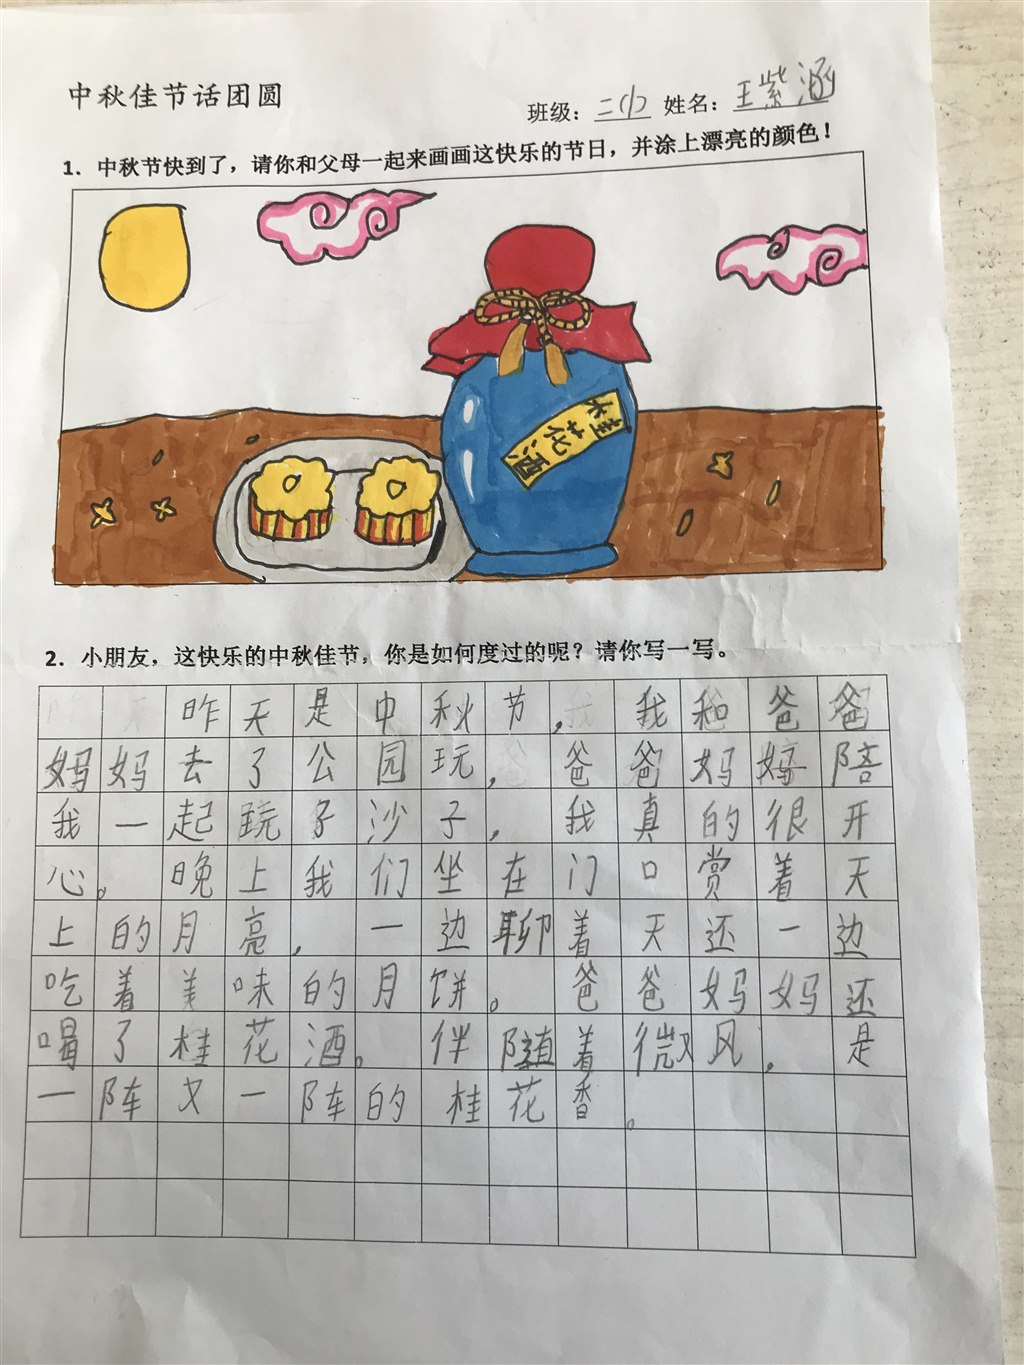 中秋佳节话团圆
班级：二(4) 姓名：王紫涵
1. 中秋节快到了，请你和父母一起来画画这快乐的节日，并涂上漂亮的颜色！
桂花酒
2. 小朋友，这快乐的中秋佳节，你是如何度过的呢？请你写一写。
昨天是中秋节，我和爸爸
妈妈去了公园玩，爸爸妈妈陪
我一起玩子沙子，我真的很开
心。晚上我们坐在门口赏着天
上的月亮，一边聊着天还一边
吃着美味的月饼。爸爸妈妈还
喝了桂花酒。伴随着微风，是
一阵又一阵的桂花香。